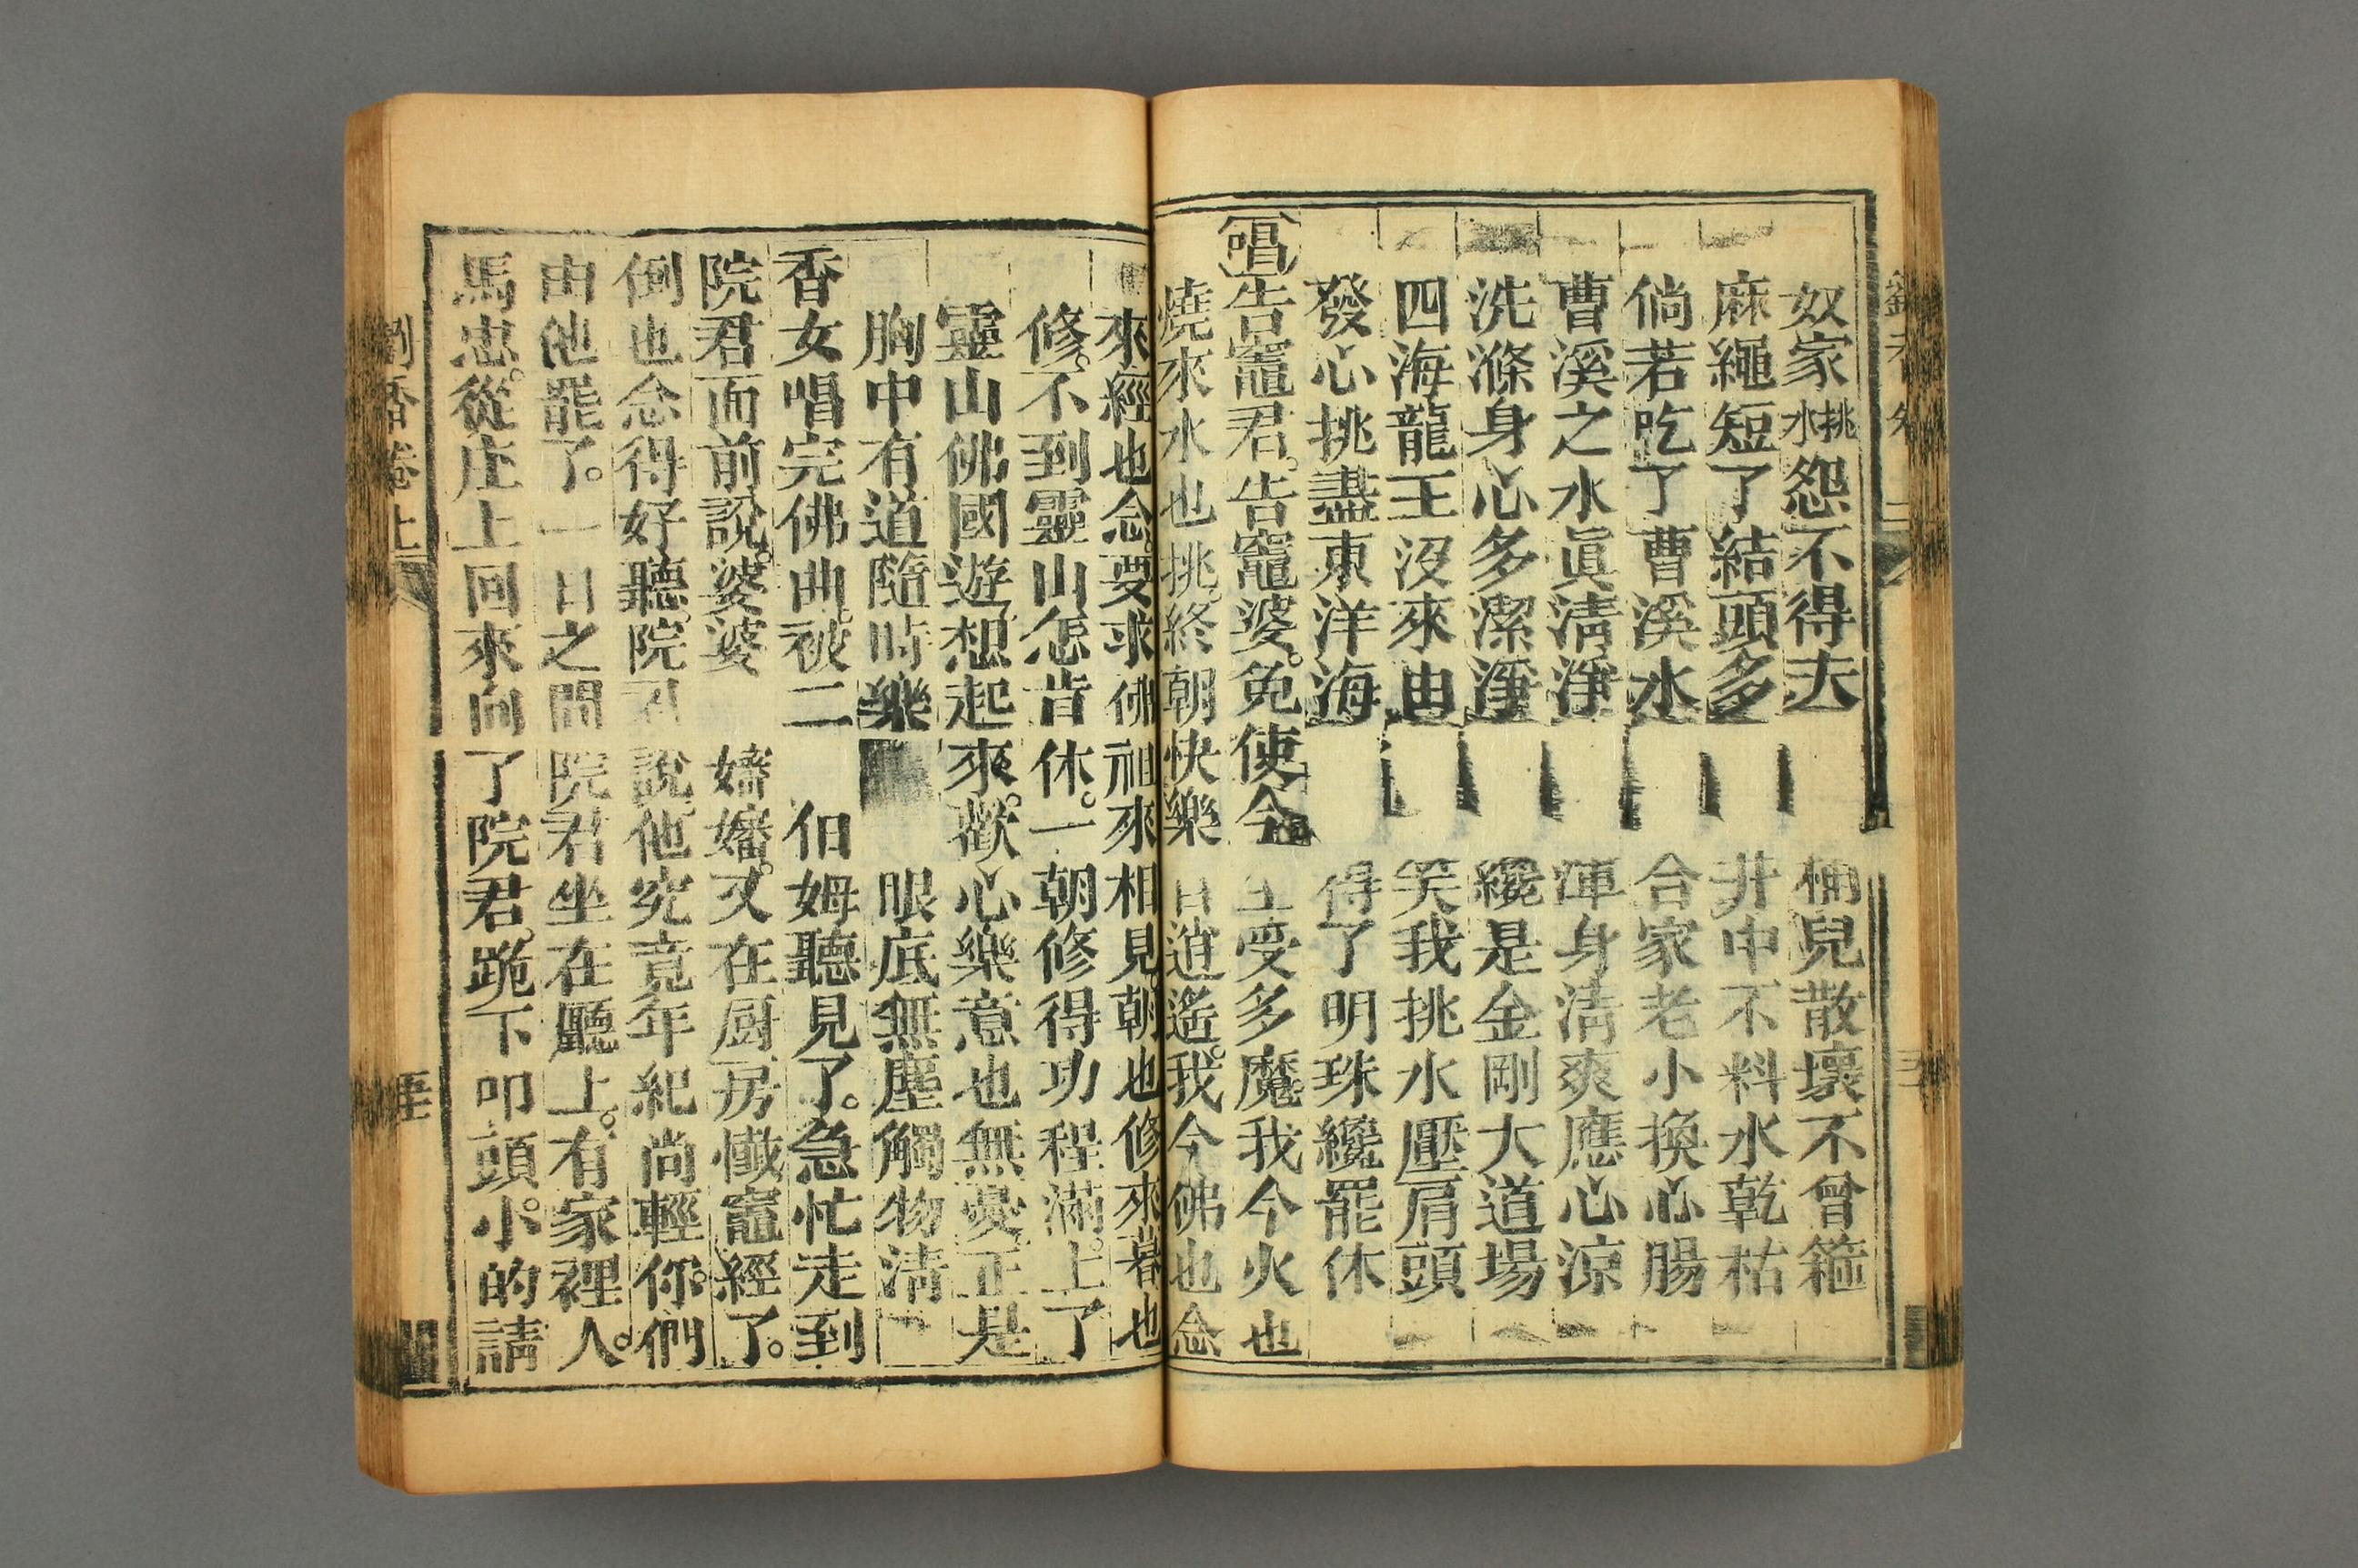 奴家挑水怨不得夫 桶兒散壞不曾箍
麻繩短了結頭多 井中不料水乾枯
倘若吃了曹溪水 合家老小換心腸
曹溪之水眞清淨 渾身清爽應心涼
洗滌身心多潔淨 纔是金剛大道場
四海龍王沒來由 笑我挑水壓肩頭
發心挑盡東洋海 得了明珠纔罷休
唱告竈君。告竈婆。免使今生受多魔。我今火也
燒來水也挑。終朝快樂日逍遙。我今佛也念
來經也念。要求佛祖來相見。朝也修來暮也
修。不到靈山怎肯休。一朝修得功程滿。上了
靈山佛國遊。想起來。歡心樂意也無憂。正是
胸中有道隨時樂 眼底無塵觸物清
香女唱完佛曲。被二伯姆聽見了。急忙走到
院君面前說。婆婆 嬸嬸。又在厨房懺竈經了。
倒也念得好聽。院君說。他究竟年紀尚輕。你們
由他罷了。一日之間院君坐在廳上。有家裡人。
馬忠。從庄上回來向了院君。跪下叩頭。小的請
劉香卷上